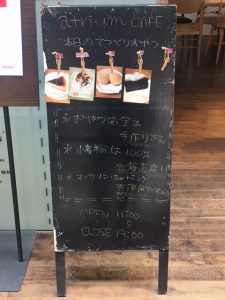 atrium CAFE
本日のてづくりおやつ
＊おやつは全て
手作りです。
＊小麦粉は100%
北海道産
＊マーガリン・ショートニング
不使用です。
OPEN 11:00
CLOSE 19:00